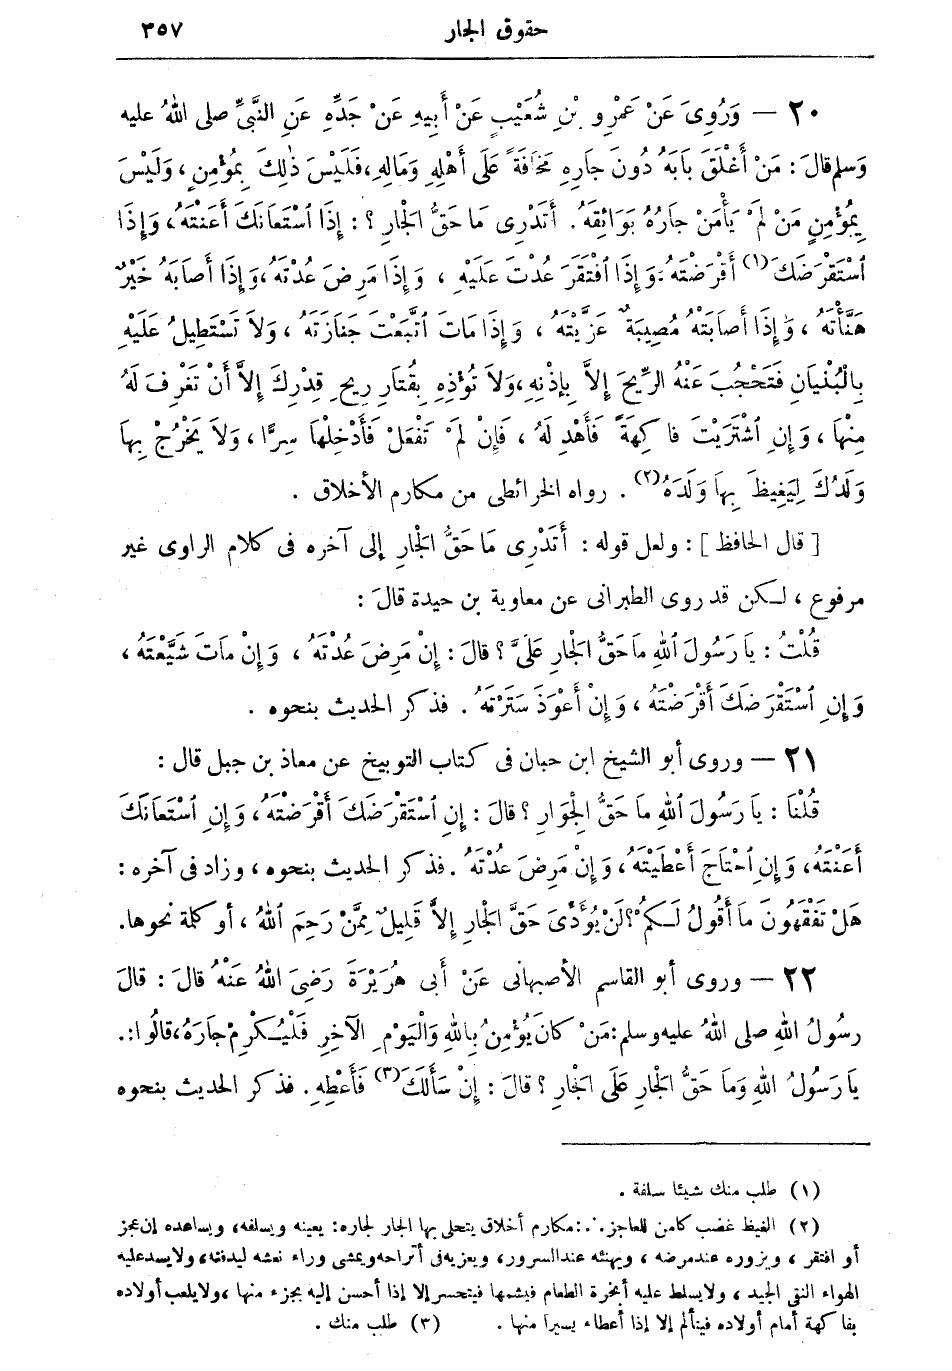 حقوق الجار ٣٥٧
٢٠ — وَرُوِىَ عَنْ عَمْرِو بْنِ شُعَيْبٍ عَنْ أَبِيهِ عَنْ جَدِّهِ عَنِ النَّبىِّ صلى اللهُ عليه
وسلم قالَ : مَنْ أَغْلَقَ بَابَهُ دُونَ جَارِهِ مَخَافَةً عَلَى أَهْلِهِ وَمَالِهِ ، فَلَيْسَ ذٰلِكَ بِمُؤْمِنٍ ، وَلَيْسَ
بِمُؤْمِنٍ مَنْ لَمْ يَأْمَنْ جَارُهُ بَوَائِقَهُ . أَتَدْرِى مَا حَقُّ الْجَارِ ؟ : إِذَا ٱسْتَعَانَكَ أَعَنْتَهُ ، وَإِذَا
ٱسْتَقْرَضَكَ (١) أَقْرَضْتَهُ ، وَإِذَا افْتَقَرَ عُدْتَ عَلَيْهِ ، وَإِذَا مَرِضَ عُدْتَهُ ، وَإِذَا أَصَابَهُ خَيْرٌ
هَنَّأْتَهُ ، وَإِذَا أَصَابَتْهُ مُصِيبَةٌ عَزَّيْتَهُ ، وَإِذَا مَاتَ ٱتَّبَعْتَ جَنَازَتَهُ ، وَلاَ تَسْتَطِيلُ عَلَيْهِ
بِالْبُنْيَانِ فَتَحْجُبَ عَنْهُ الرِّيحَ إِلاَّ بِإِذْنِهِ ، وَلاَ تُؤْذِهِ بِقُتَارِ رِيحِ قِدْرِكَ إِلاَّ أَنْ تَغْرِفَ لَهُ
مِنْهَا ، وَإِنِ ٱشْتَرَيْتَ فَاكِهَةً فَأَهْدِ لَهُ ، فَإِنْ لَمْ تَفْعَلْ فَأَدْخِلْهَا سِرًّا ، وَلاَ يَخْرُجْ بِهَا
وَلَدُكَ لِيَغِيظَ بِهَا وَلَدَهُ (٢) . رواه الخرائطى من مكارم الأخلاق .
[ قال الحافظ ] : ولعل قوله : أَتَدْرِى مَا حَقُّ الْجَارِ إلى آخره فى كلام الراوى غير
مرفوع ، لـكن قد روى الطبرانى عن معاوية بن حيدة قالَ :
قُلْتُ : يَا رَسُولَ ٱللهِ مَا حَقُّ الْجَارِ عَلَىَّ ؟ قالَ : إِنْ مَرِضَ عُدْتَهُ ، وَإِنْ مَاتَ شَيَّعْتَهُ ،
وَإِنِ ٱسْتَقْرَضَكَ أَقْرَضْتَهُ ، وَإِنْ أَعْوَذَ سَتَرْتَهُ . فذكر الحديث بنحوه .
٢١ — وروى أبو الشيخ ابن حبان فى كتاب التوبيخ عن معاذ بن جبل قال :
قُلْنَا : يَا رَسُولَ ٱللهِ مَا حَقُّ الْجِوَارِ ؟ قالَ : إِنِ ٱسْتَقْرَضَكَ أَقْرَضْتَهُ ، وَإِنِ ٱسْتَعَانَكَ
أَعَنْتَهُ ، وَإِنِ ٱحْتَاجَ أَعْطَيْتَهُ ، وَإِنْ مَرِضَ عُدْتَهُ . فذكر الحديث بنحوه ، وزاد فى آخره :
هَلْ تَفْقَهُونَ مَا أَقُولُ لَـكُمْ ؟ لَنْ يُؤَدِّىَ حَقَّ الْجَارِ إِلاَّ قَلِيلٌ مِمَّنْ رَحِمَ ٱللهُ ، أو كلمة نحوها.
٢٢ — وروى أبو القاسم الأصبهانى عَنْ أَبى هُرَيْرَةَ رَضِىَ اللهُ عَنْهُ قالَ : قالَ
رسُولُ اللهِ صلى اللهُ عليه وسلم : مَنْ كانَ يُؤْمِنُ بِاللهِ وَالْيَوْمِ الآخِرِ فَلْيُـكْرِمْ جَارَهُ ، قالُوا :
يَا رَسُولُ اللهِ وَما حَقُّ الْجَارِ عَلَى الْجَارِ ؟ قالَ : إِنْ سَأَلَكَ (٣) فَأَعْطِهِ . فذكر الحديث بنحوه
(١) طلب منك شيئا سلفة .
(٢) الغيظ غضب كامن للعاجز .'. : مكارم أخلاق يتحلى بها الجار لجاره : يعينه ويسلفه ، ويساعده إن عجز
أو افتقر ، ويزوره عند مرضه ، ويهنئه عند السرور ، ويعزيه فى أتراحه ويمشى وراء نعشه ليدفنه ، ولا يسد عليه
الهواء النقى الجيد ، ولا يسلط عليه أبخرة الطعام فيشمها فيتحسر إلا إذا أحسن إليه بجزء منها ، ولا يلعب أولاده
بفاكهة أمام أولاده فيتألم إلا إذا أعطاء يسيرا منها . (٣) طلب منك .